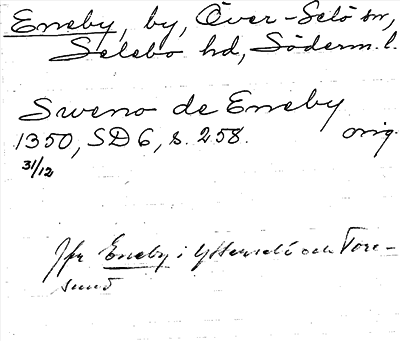 Eneby, by, Över-Selö sn,
Selebo hd, Söderm. l.
Sweno de Eneby
1350, SD 6, s. 258. orig.
31/12
Jfr Eneby i Ytterselö och Tore-
sund